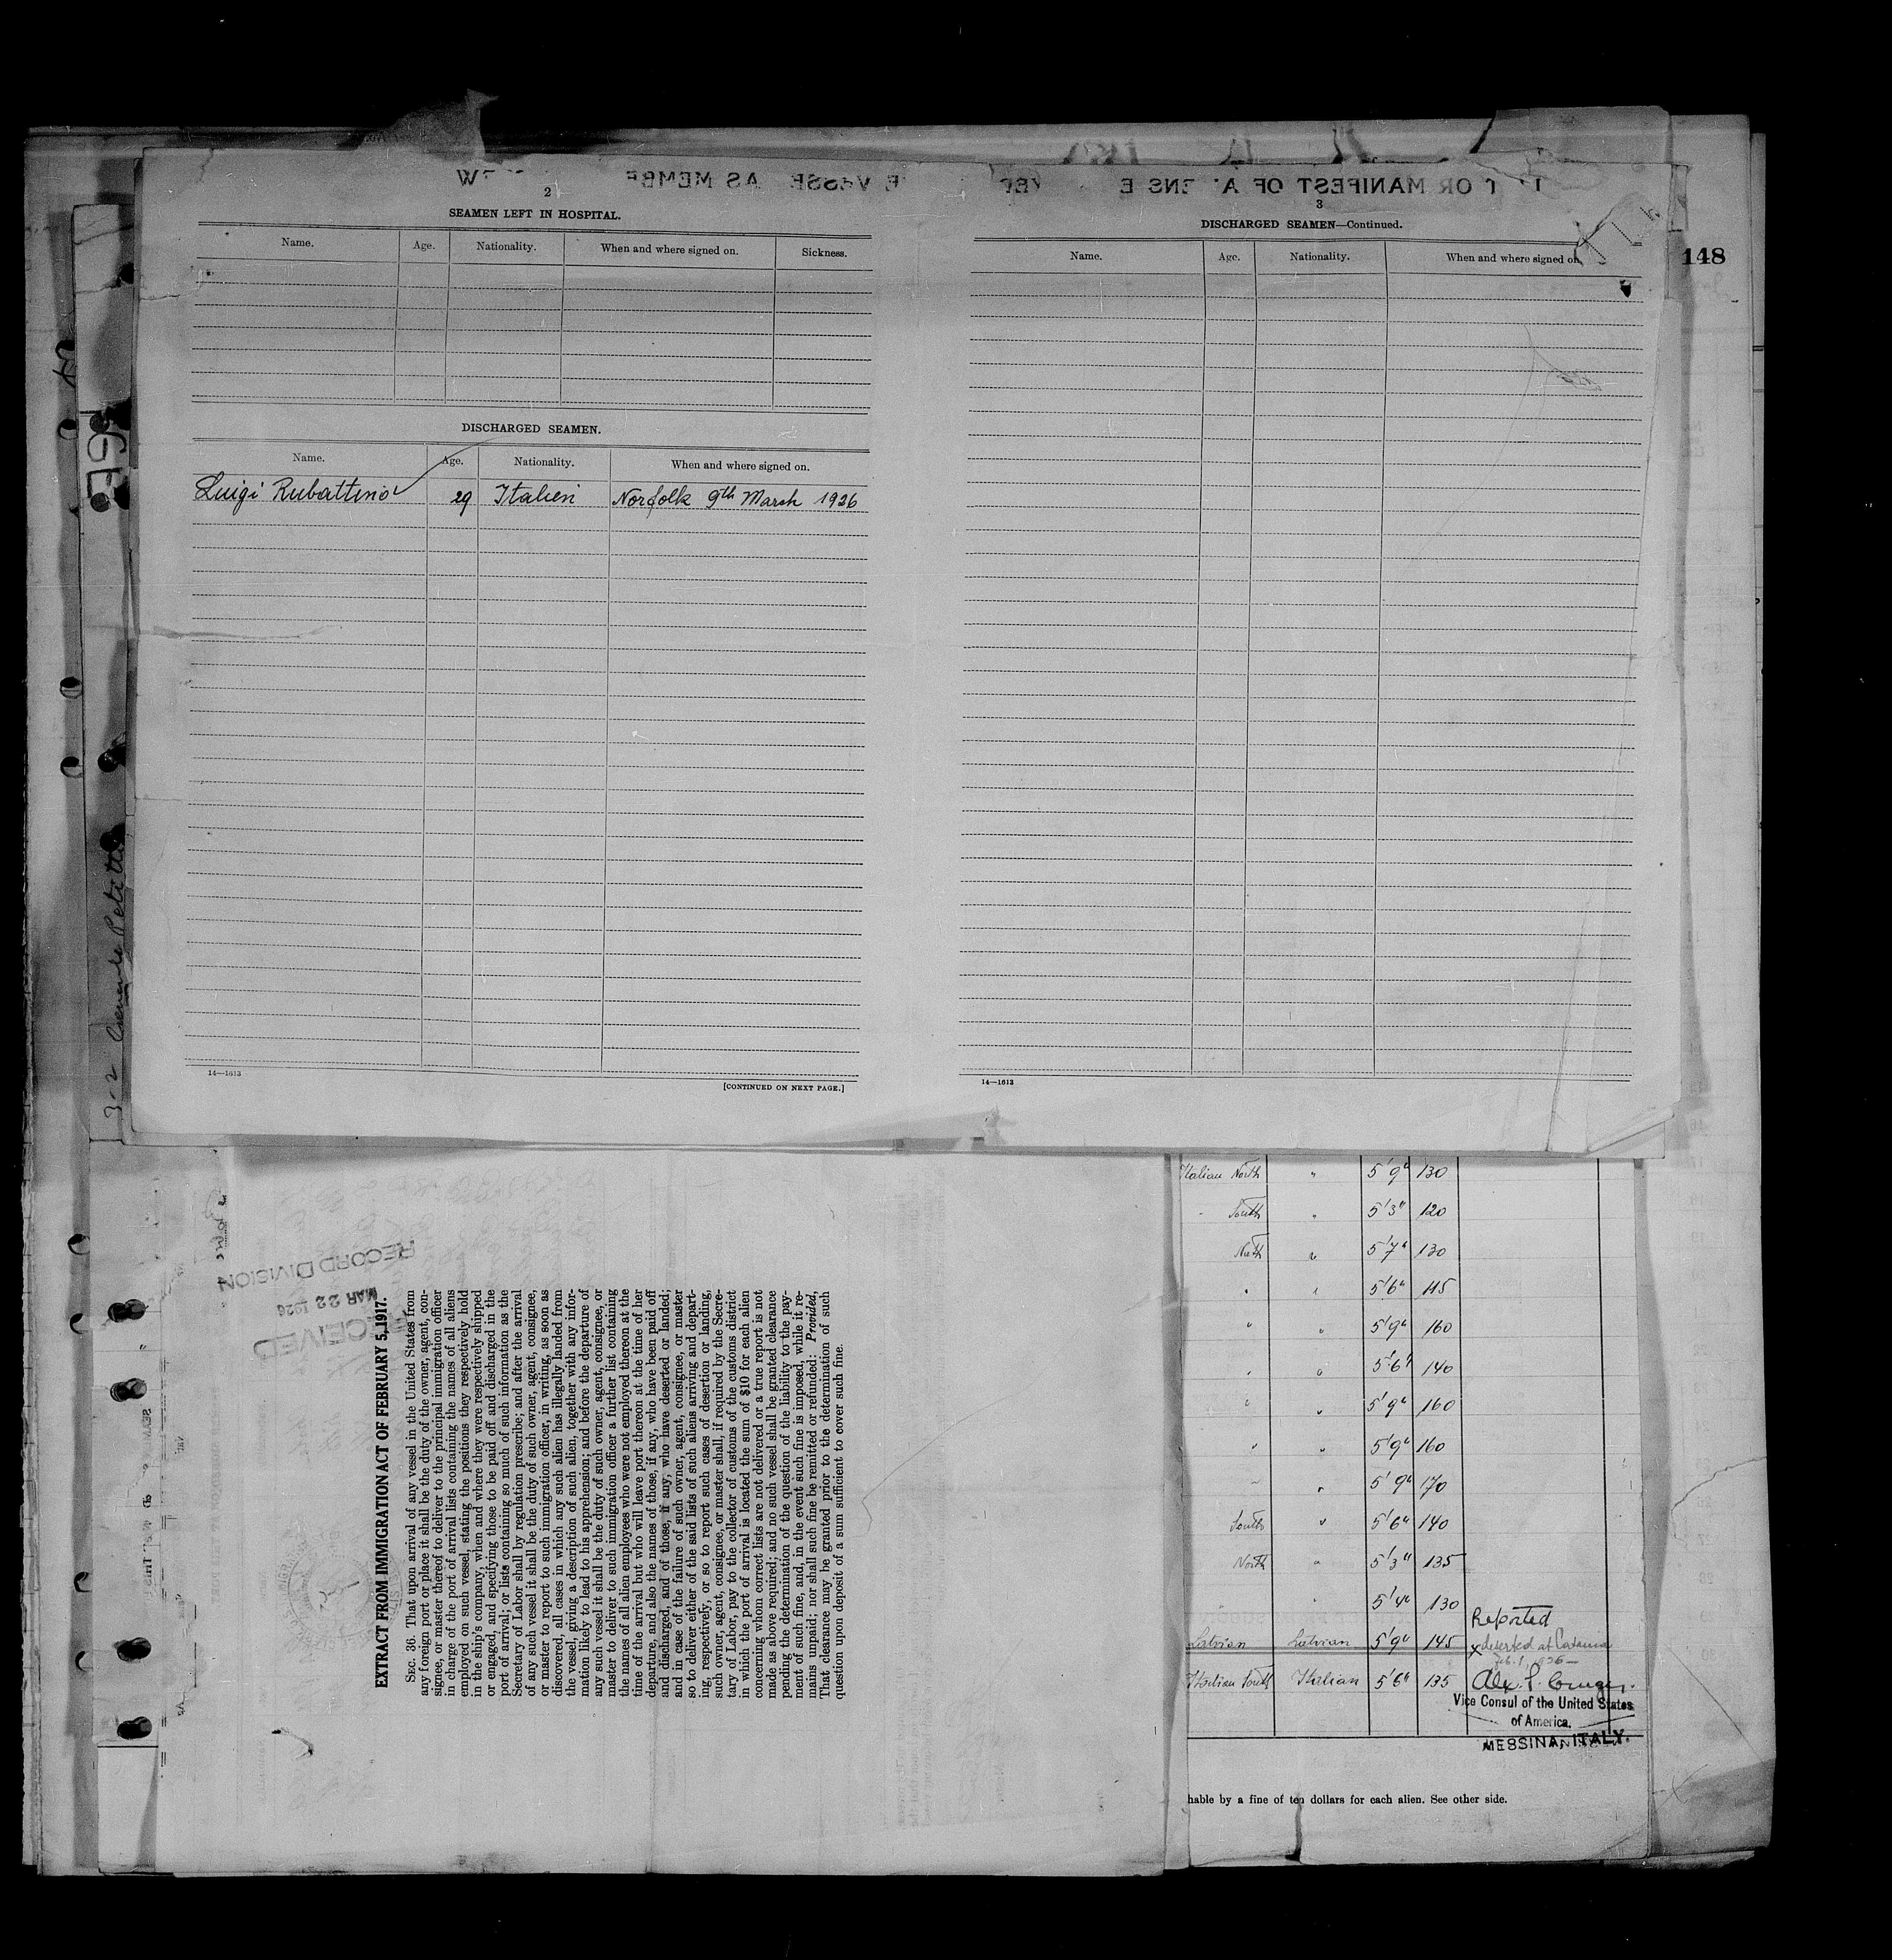 2
SEAMEN LEFT IN HOSPITAL.
Name. Age. Nationality. When and where signed on. Sickness.
DISCHARGED SEAMEN.
Name. Age. Nationality. When and where signed on.
Luigi Rubattino 29 Italien Norfolk 9th March 1926
14—1613
[CONTINUED ON NEXT PAGE.]
OR MANIFEST OF A
AS MEMBE
3
DISCHARGED SEAMEN—Continued.
Name. Age. Nationality. When and where signed on
14—1613
148
3-2
RECEIVED
MAR 22 1926
RECORD DIVISION
EXTRACT FROM IMMIGRATION ACT OF FEBRUARY 5, 1917.
SEC. 36. That upon arrival of any vessel in the United States from
any foreign port or place it shall be the duty of the owner, agent, con-
signee, or master thereof to deliver to the principal immigration officer
in charge of the port of arrival lists containing the names of all aliens
employed on such vessel, stating the positions they respectively hold
in the ship's company, when and where they were respectively shipped
or engaged, and specifying those to be paid off and discharged in the
port of arrival; or lists containing so much of such information as the
Secretary of Labor shall by regulation prescribe; and after the arrival
of any such vessel it shall be the duty of such owner, agent, consignee,
or master to report to such immigration officer, in writing, as soon as
discovered, all cases in which any such alien has illegally landed from
the vessel, giving a description of such alien, together with any infor-
mation likely to lead to his apprehension; and before the departure of
any such vessel it shall be the duty of such owner, agent, consignee, or
master to deliver to such immigration officer a further list containing
the names of all alien employees who were not employed thereon at the
time of the arrival but who will leave port thereon at the time of her
departure, and also the names of those, if any, who have been paid off
and discharged, and of those, if any, who have deserted or landed;
and in case of the failure of such owner, agent, consignee, or master
so to deliver either of the said lists of such aliens arriving and depart-
ing, respectively, or so to report such cases of desertion or landing,
such owner, agent, consignee, or master shall, if required by the Secre-
tary of Labor, pay to the collector of customs of the customs district
in which the port of arrival is located the sum of $10 for each alien
concerning whom correct lists are not delivered or a true report is not
made as above required; and no such vessel shall be granted clearance
pending the determination of the question of the liability to the pay-
ment of such fine, and, in the event such fine is imposed, while it re-
mains unpaid; nor shall such fine be remitted or refunded: Provided,
That clearance may be granted prior to the determination of such
question upon deposit of a sum sufficient to cover such fine.
Italian North " 5'9" 130
" South " 5'3" 120
North " 5'7" 130
" " 5'6" 115
" " 5'9" 160
" " 5'6" 140
" " 5'9" 160
" " 5'9" 160
" " 5'9" 170
South " 5'6" 140
North " 5'3" 135
" " 5'4" 130
Reported
Latvian Latvian 5'9" 145 x deserted at Catania
Feb. 1, 1926
Italian South Italian 5'6" 135
Vice Consul of the United States
of America.
MESSINA, ITALY.
hable by a fine of ten dollars for each alien. See other side.